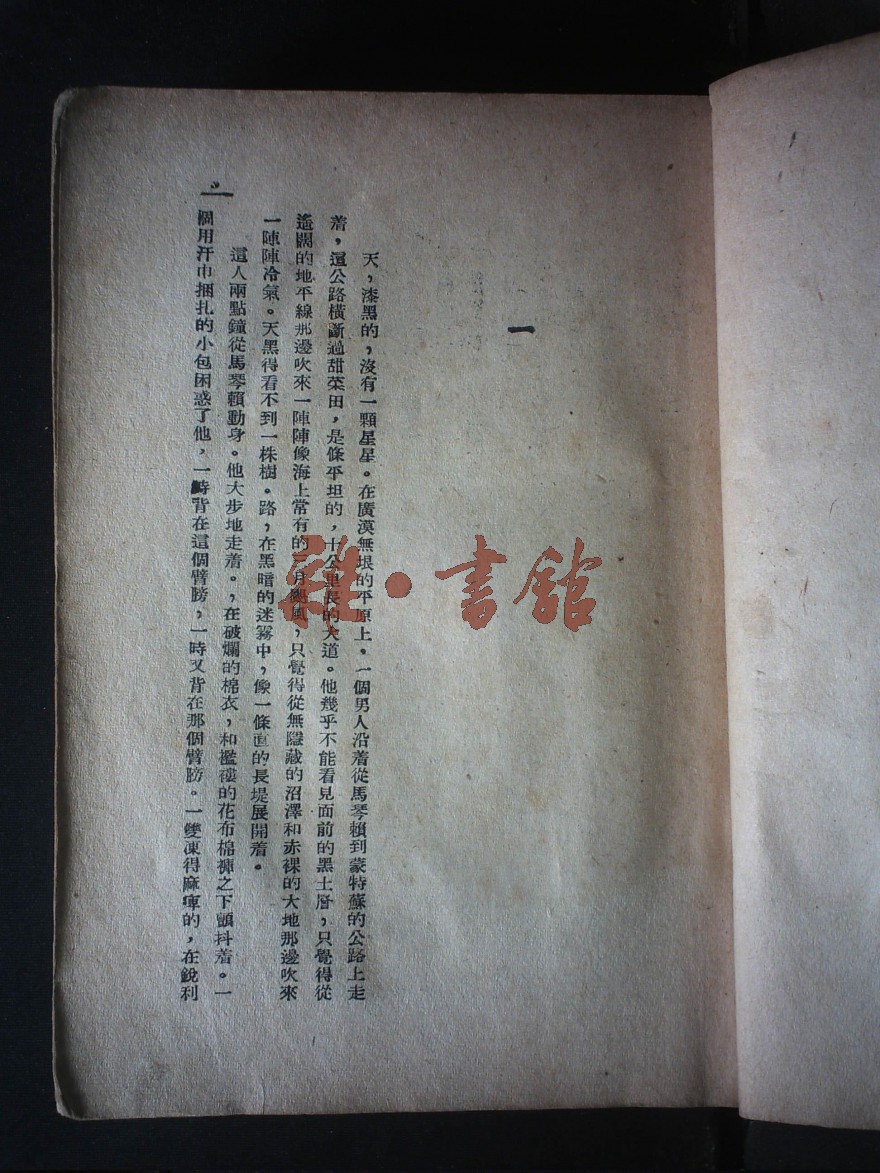 一
天，漆黑的，沒有一顆星星。在廣漠無垠的平原上。一個男人沿着從馬琴賴到蒙特蘇的公路上走
着，這公路橫斷過甜菜田，是條平坦的，十公里長的大道。他幾乎不能看見面前的黑土層，只覺得從
遙闊的地平線那邊吹來一陣陣像海上常有的三月颶風，只覺得從無隱藏的沼澤和赤裸的大地那邊吹來
一陣陣冷氣。天黑得看不到一株樹。路，在黑暗的迷霧中，像一條直的長堤展開着。
這人兩點鐘從馬琴賴動身。他大步地走着。，在破爛的棉衣，和襤褸的花布棉褲之下顫抖着。一
個用汗巾捆扎的小包困惑了他，一時背在這個臂膀，一時又背在那個臂膀。一雙凍得麻痺的，在銳利
雜·書館